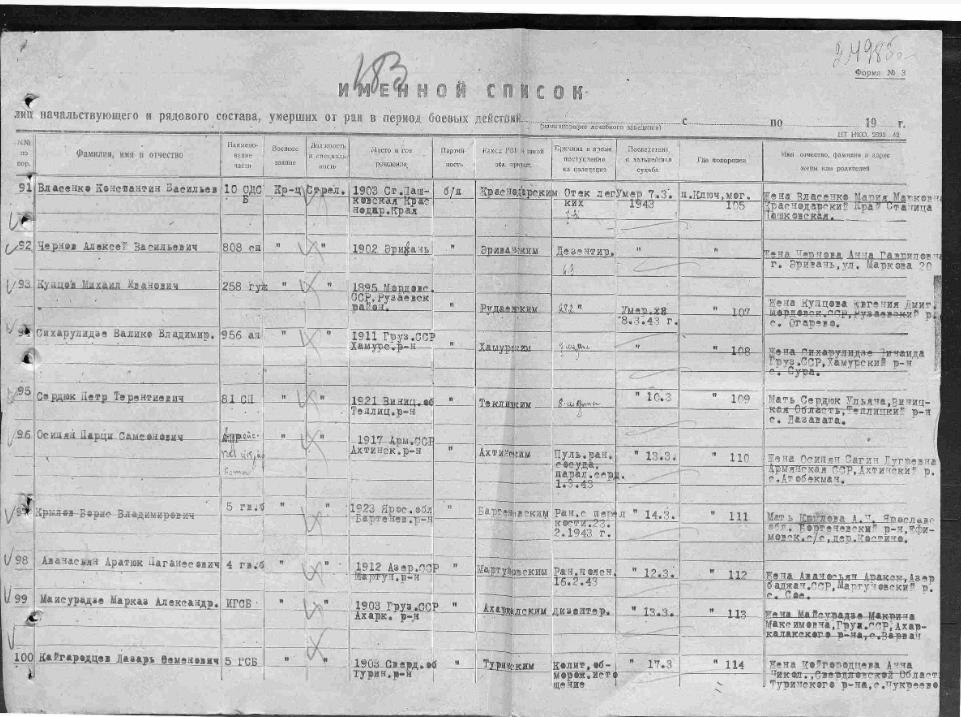 183
Форма № 3
ИМЕННОЙ СПИСОК
лиц начальствующего и рядового состава, умерших от ран в период боевых действий с по 19 г.
(наименование лечебного заведения)
№№ по пор. Фамилия, имя и отчество Наимено-вание части Воинское звание Должность и специаль-ность Место и год рождения Партий-ность Каким РВК Причина и время поступления на излечение Последствия и дальнейшая судьба Где похоронен Имя отчество, фамилия и адрес жены или родителей
91 Власенко Константин Васильев 10 ОДС Кр-ц Стрел. 1903 Ст.Паш- б/п Краснодарским Отек лег Умер 7.3. п.Ключ,мог. Жена Власенко Мария Марковн
Б ковская Крас ких 1943 105 Краснодарский Край Станица
нодар.Края Пашковская.
92 Чернов Алексей Васильевич 808 сп " " 1902 Эривань " Эриванским Дезентир. " " Жена Чернова Анна Гавриловн
г. Эривань,ул. Маркова 20
93 Купцов Михаил Иванович 258 гуж " " 1895 Мордовс.
ССР,Рузаевск " Рудаевским " Умер.хв " 107 Жена Купцова Евгения Дмит.
район. 8.3.43 г. мордовск.ССР,Рузаевский р.
с. Огарево.
94 Сихарулидзе Валико Владимир. 956 ап " " 1911 Груз.ССР
Хамурс.р-н " Хамурским " " 108 Жена Сихарулидзе Зинаида
Груз.ССР,Хамурский р-н
с. Сура.
95 Сердюк Петр Терентиевич 81 СП " " 1921 Виниц.об " Теклицким " 10.3 " 109 Мать Сердюк Ульяна,Виниц-
Теплиц.р-н кая Область,Теплицкий р-н
с. Лазавата.
96 Осипян Парци Самсонович " " 1917 Арм.ССР
Ахтинск.р-н " Ахтинским Пуль.ран. " 13.3. " 110 Жена Осипян Сагин
сосуда, Армянская ССР,Ахтинский р.
парал.серд. с.Атобекман.
1.3.43
97 Крылов Борис Владимирович 5 гв.б " " 1923 Ярос.обл " Бартеневским Ран.с перел " 14.3. " 111 Мать Крылова А.Ч. Ярославс
Бартенев.р-н кости.23. обл. Бортеневский р-н,Ефи-
2.1943 г. мовск.с/с,дер.Костино.
98 Аванасьян Аратюк Паганесович 4 гв.б " " 1912 Азер.ССР " Мартуновским Ран.колен. " 12.3. " 112 Жена Аваносьян Аракси,Азер
Мартун.р-н 16.2.43 баджан.ССР,Мартуновский р.
с. Сос.
99 Майсурадзе Марказ Александр. ИГСБ " " 1903 Груз.ССР " Ахаркалским дизентер. " 13.3. " 113 Жена Майсурадзе Макрина
Ахарк. р-н Максимовна,Груз.ССР,Ахар-
калакского р-на,с.Варван
100 Кайгародцев Лазарь Семенович 5 ГСБ " " 1903 Сверд.об " Туринским Колит,об- " 17.3 " 114 Жена Койгородцева Анна
Турин.р-н морож.исто Никол.,Свердловской Област
щение Туринского р-на,с.Чукреево